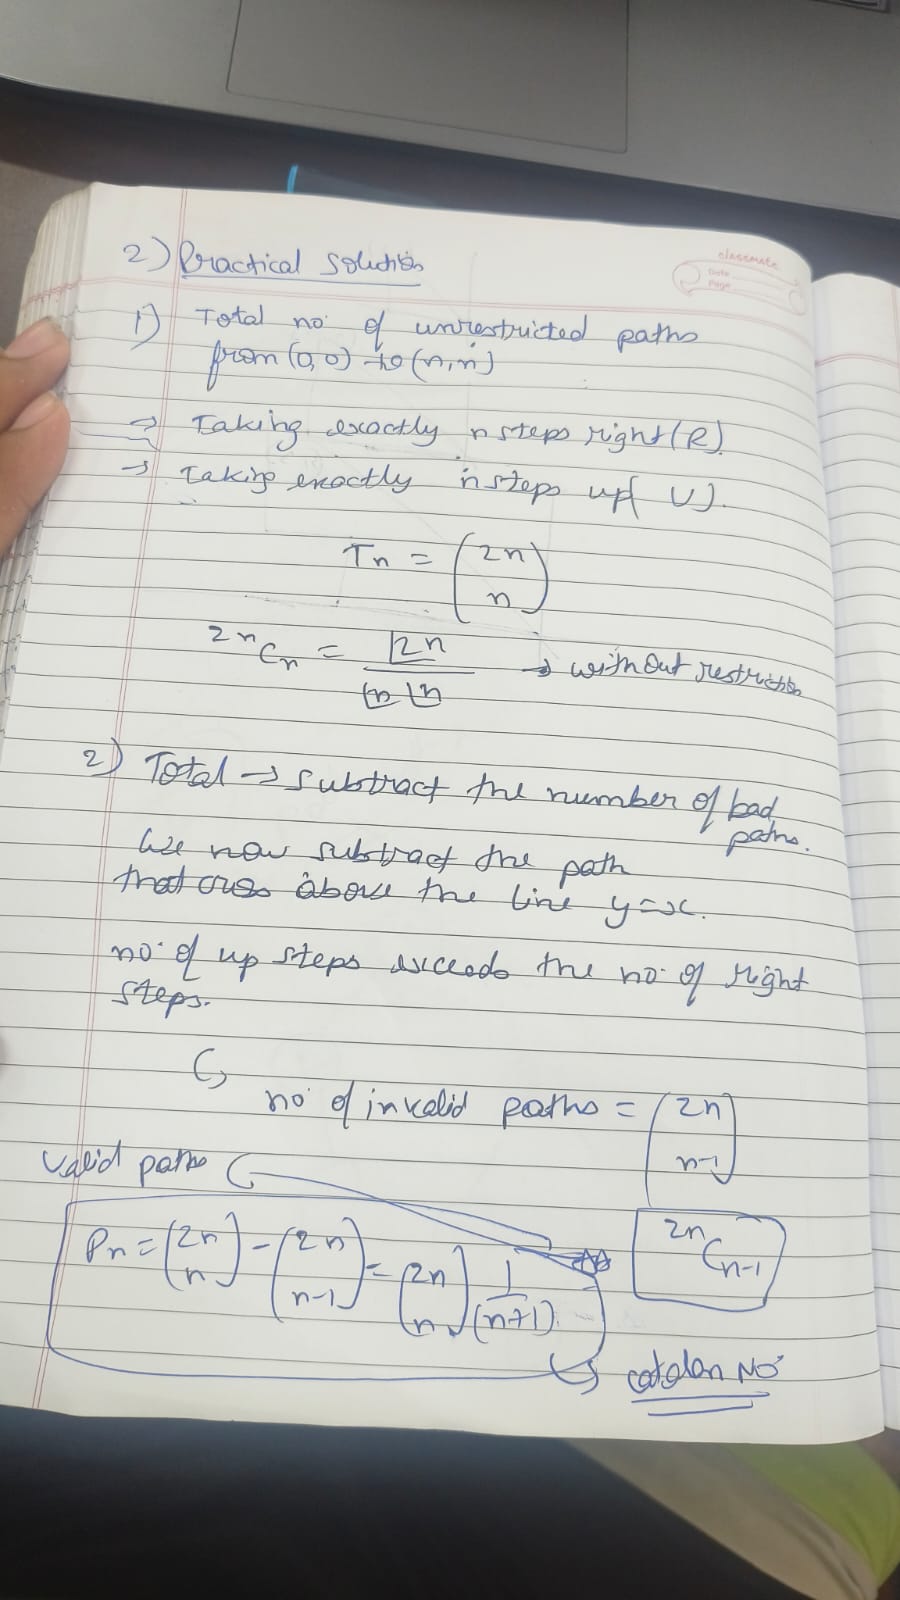 classmate
Date
Page
2) Practical Solution
1) Total no. of unrestricted paths
from (0,0) to (n,n)
→ Taking exactly n steps right (R)
→ Taking exactly n steps up( U).
Tn = (2n n)
2nCn = |2n / |n |n → without restriction
2) Total → subtract the number of bad
paths.
We now subtract the path
that cross above the line y=x.
no. of up steps exceeds the no. of right
steps.
↳ no. of invalid paths = (2n n-1)
Valid paths
2nCn-1
Pn = (2n n) - (2n n-1) = (2n n) 1/(n+1).
↳ catalan No.